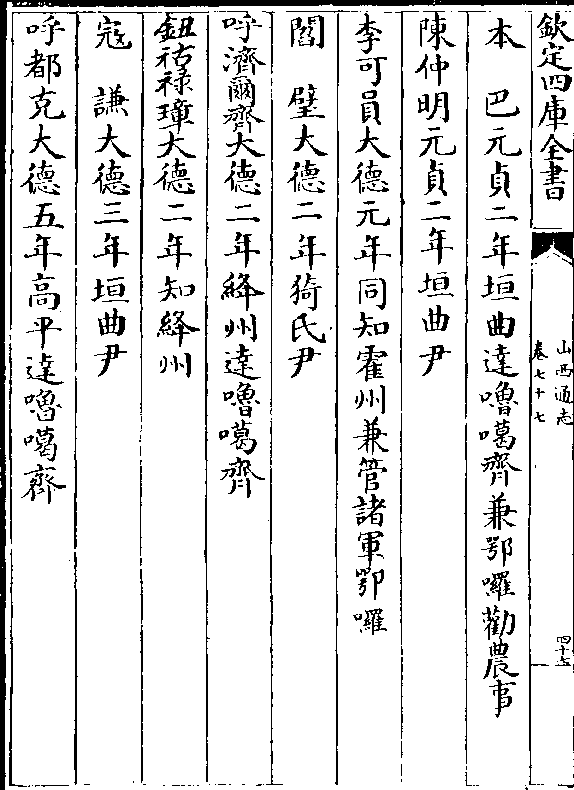 欽定四庫全書
山西通志
卷七十七
四十七
本　巴元貞二年垣曲達嚕噶齊兼鄂囉勸農事
陳仲明元貞二年垣曲尹
李可員大德元年同知霍州兼管諸軍鄂囉
閻　璧大德二年猗氏尹
呼濟爾齊大德二年絳州達嚕噶齊
鈕祜禄璋大德二年知絳州
寇　謙大德三年垣曲尹
呼都克大德五年高平達嚕噶齊